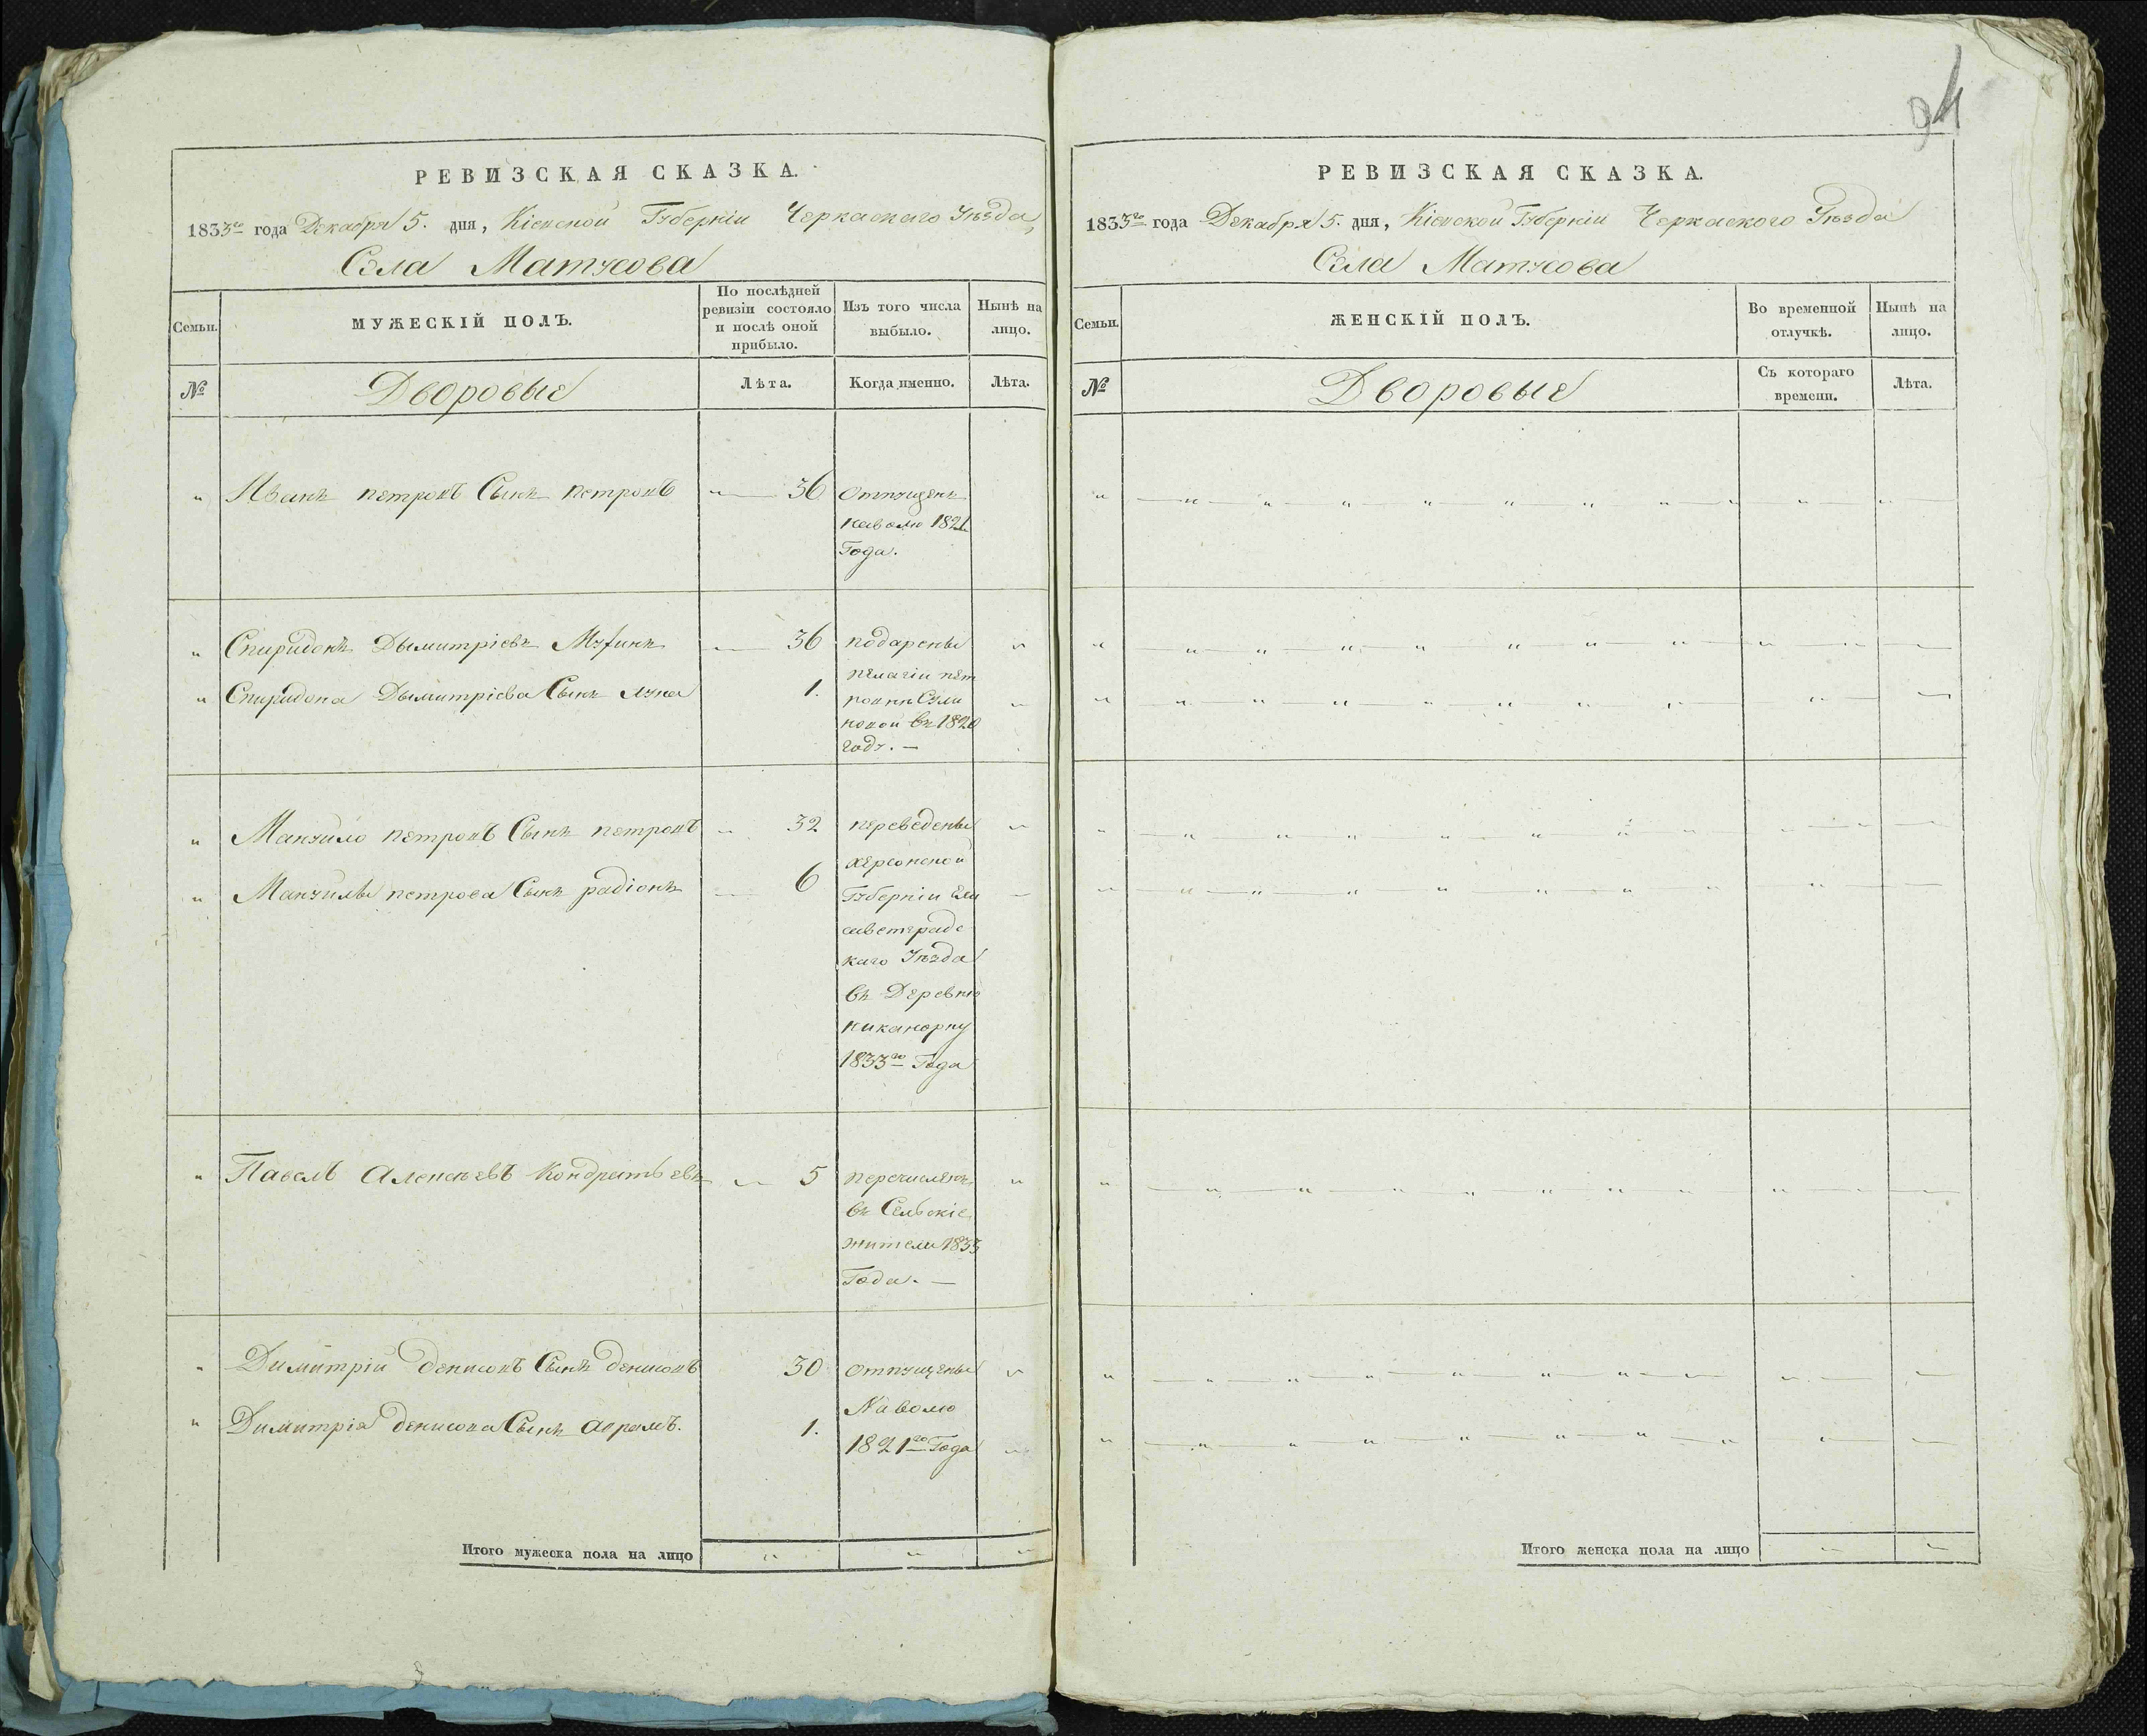 94
РЕВИЗСКАЯ СКАЗКА.
1833го года Декабря 5. дня, Кіевской Губерніи Черкаскаго Уѣзда,
Села Матусова
Семьи.
МУЖЕСКІЙ ПОЛЪ.
По послѣдней
ревизіи состояло
и послѣ оной
прибыло.
Изъ того числа
выбыло.
Нынѣ на
лицо.
№
Дворовые
Лѣта.
Когда именно.
Лѣта.
" Иванъ петровъ Сынъ петровъ — 36 отпущенъ
наволю 1821
Года.
" Спиридонъ Дымитріевъ Мухинъ — 36 подарены
пелагіи пет
" Спиридона Дымитріева Сынъ лука 1.
ровны Сули
новой въ 1820
году. —
" Мануйло петровъ Сынъ петровъ " 32 переведены
херсонской
" Мануйлы петрова Сынъ радіонъ — 6
Губерніи Ели
саветградс
каго Уѣзда
въ Деревню
никанорку
1833го Года
" Павелъ Алексѣевъ Кондратьевъ — 5 перечисленъ
въ Сельскіе
жители 1833
Года. —
" Димитрій денисовъ Сынъ денисовъ 30 отпущены
Наволю
" Димитрія денисова Сынъ аврамъ. 1.
1821го Года
Итого мужеска пола на лицо " " "
РЕВИЗСКАЯ СКАЗКА.
1833го года Декабря 5. дня, Кіевской Губерніи Черкаского Уѣзда
Села Матусова
Семьи.
ЖЕНСКІЙ ПОЛЪ.
Во временной
отлучкѣ.
Нынѣ на
лицо.
№
Дворовые
Съ котораго
времени.
Лѣта.
Итого женска пола на лицо " "